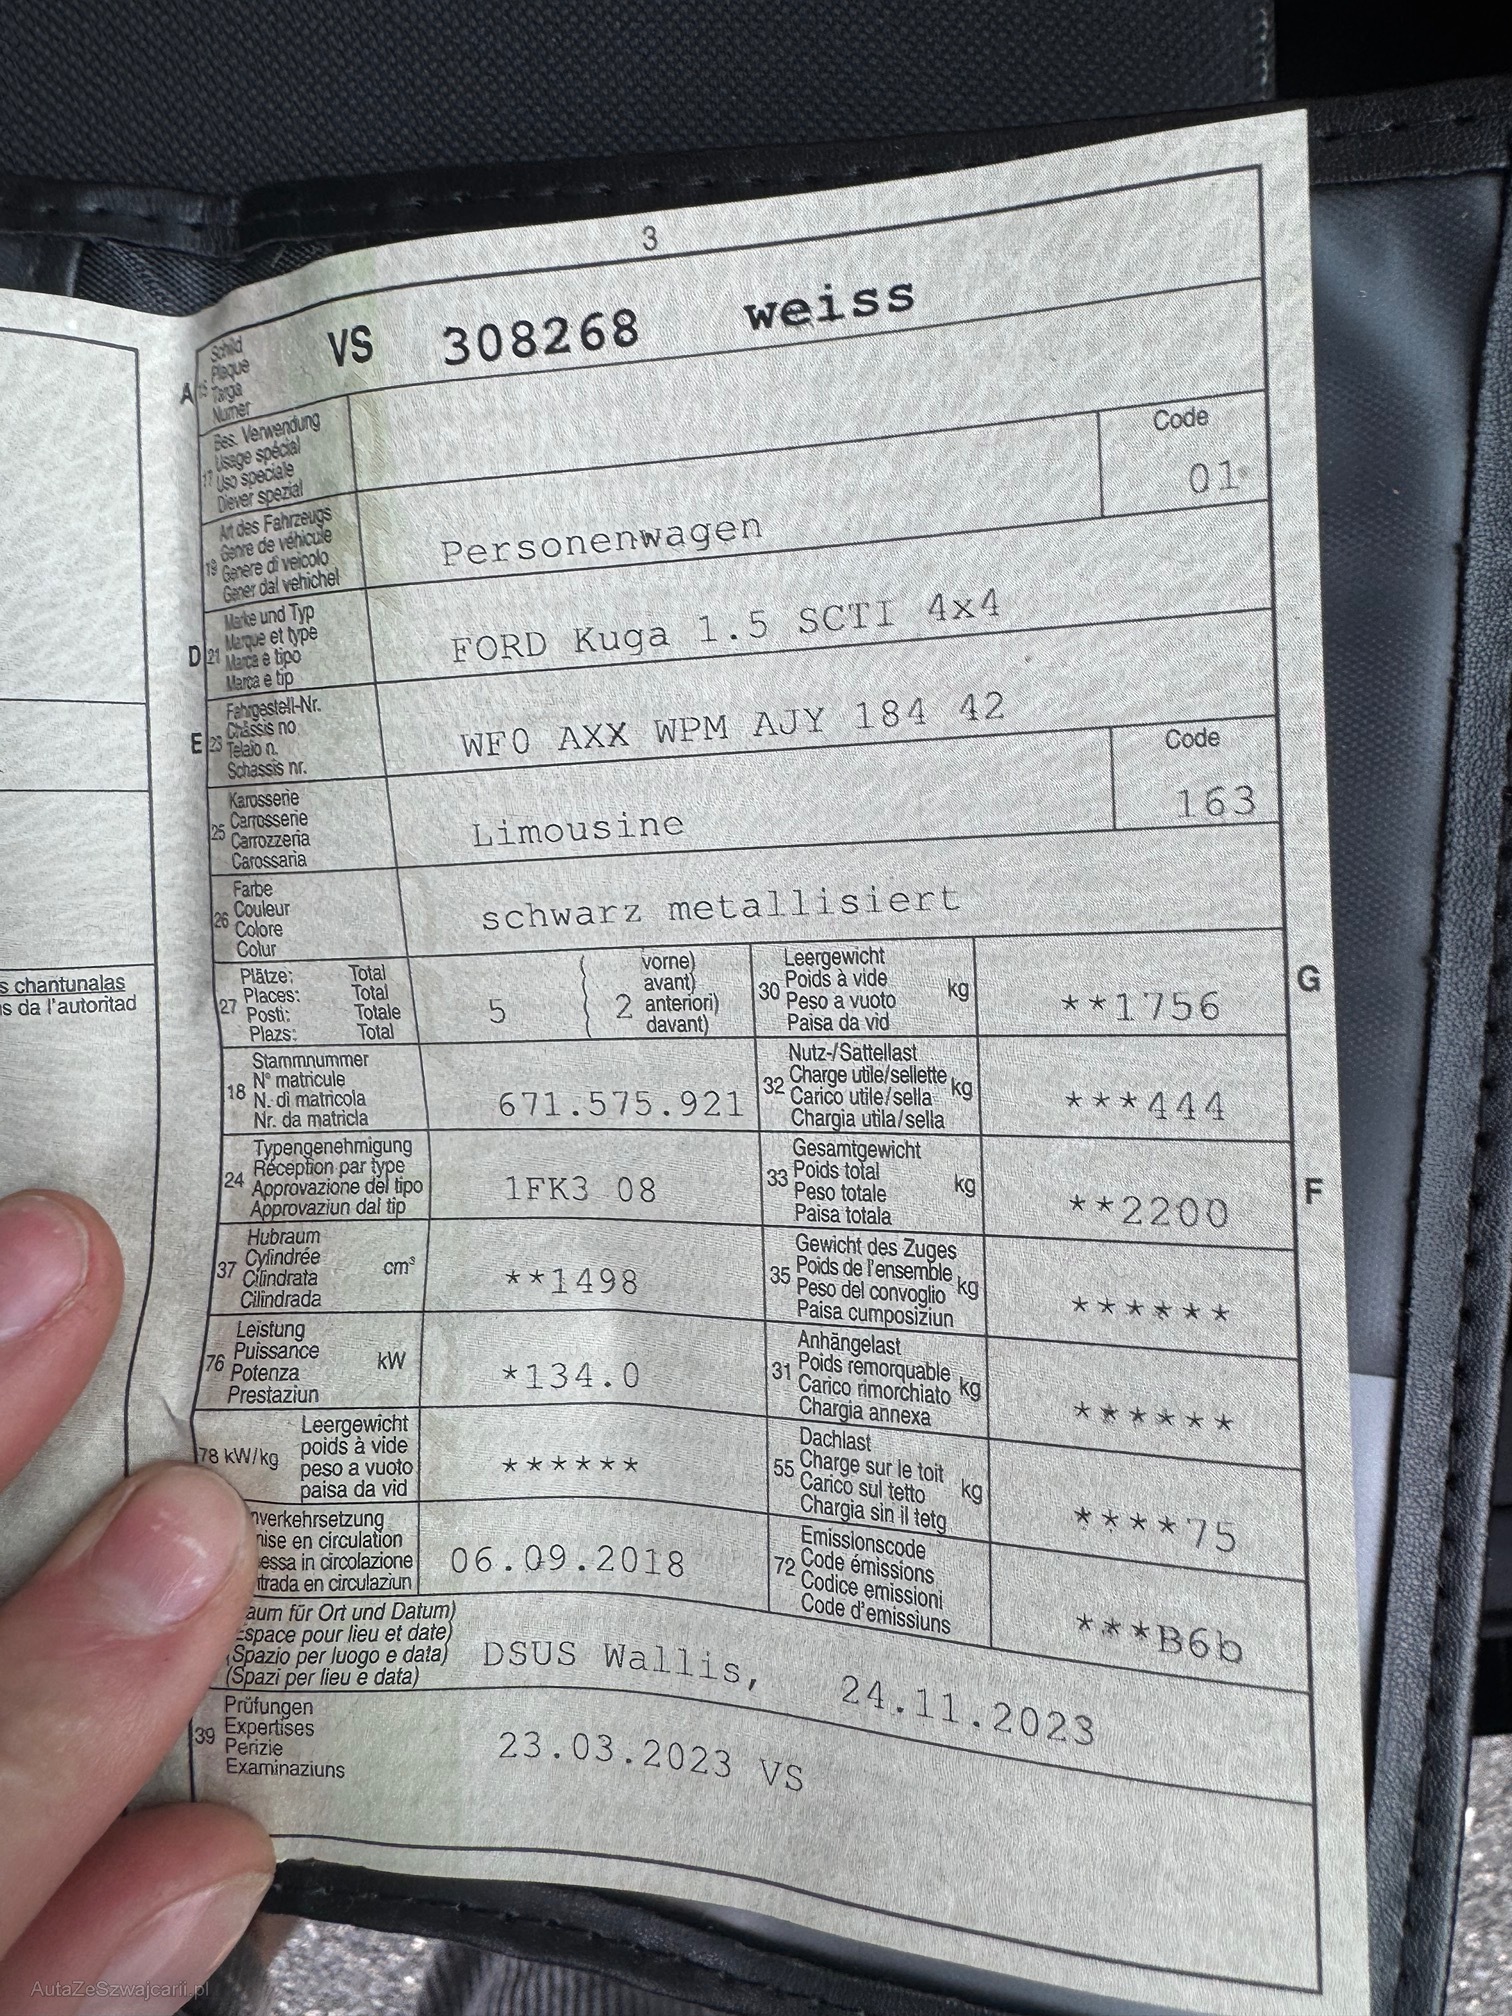 3
A 15 Schild
Plaque
Targa
Numer
VS 308268 weiss
17 Bes. Verwendung
Usage spécial
Uso speciale
Diever spezial
19 Art des Fahrzeugs
Genre de véhicule
Genere di veicolo
Gener dal vehichel
Personenwagen
Code
01
D 21 Marke und Typ
Marque et type
Marca e tipo
Marca e tip
FORD Kuga 1.5 SCTI 4x4
E 23 Fahrgestell-Nr.
Châssis no
Telaio n.
Schassis nr.
WF0 AXX WPM AJY 184 42
25 Karosserie
Carrosserie
Carrozzeria
Carossaria
Limousine
Code
163
26 Farbe
Couleur
Colore
Colur
schwarz metallisiert
27 Plätze: Total
Places: Total
Posti: Totale
Plazs: Total
5
2 vorne)
avant)
anteriori)
davant)
30 Leergewicht
Poids à vide
Peso a vuoto
Paisa da vid
kg
**1756
G
s chantunalas
s da l'autoritad
18 Stammnummer
N° matricule
N. di matricola
Nr. da matricla
671.575.921
32 Nutz-/Sattellast
Charge utile/sellette
Carico utile/sella
Chargia utila/sella
kg
***444
24 Typengenehmigung
Réception par type
Approvazione del tipo
Approvaziun dal tip
1FK3 08
33 Gesamtgewicht
Poids total
Peso totale
Paisa totala
kg
**2200
F
37 Hubraum
Cylindrée
Cilindrata
Cilindrada
cm³
**1498
35 Gewicht des Zuges
Poids de l'ensemble
Peso del convoglio
Paisa cumposiziun
kg
******
76 Leistung
Puissance
Potenza
Prestaziun
kW
*134.0
31 Anhängelast
Poids remorquable
Carico rimorchiato
Chargia annexa
kg
******
78 kW/kg
Leergewicht
poids à vide
peso a vuoto
paisa da vid
******
55 Dachlast
Charge sur le toit
Carico sul tetto
Chargia sin il tetg
kg
****75
nverkehrsetzung
mise en circulation
essa in circolazione
trada en circulaziun
06.09.2018
72 Emissionscode
Code émissions
Codice emissioni
Code d'emissiuns
***B6b
aum für Ort und Datum)
Espace pour lieu et date)
(Spazio per luogo e data)
(Spazi per lieu e data)
DSUS Wallis, 24.11.2023
39 Prüfungen
Expertises
Perizie
Examinaziuns
23.03.2023 VS
AutaZeSzwajcarii.pl